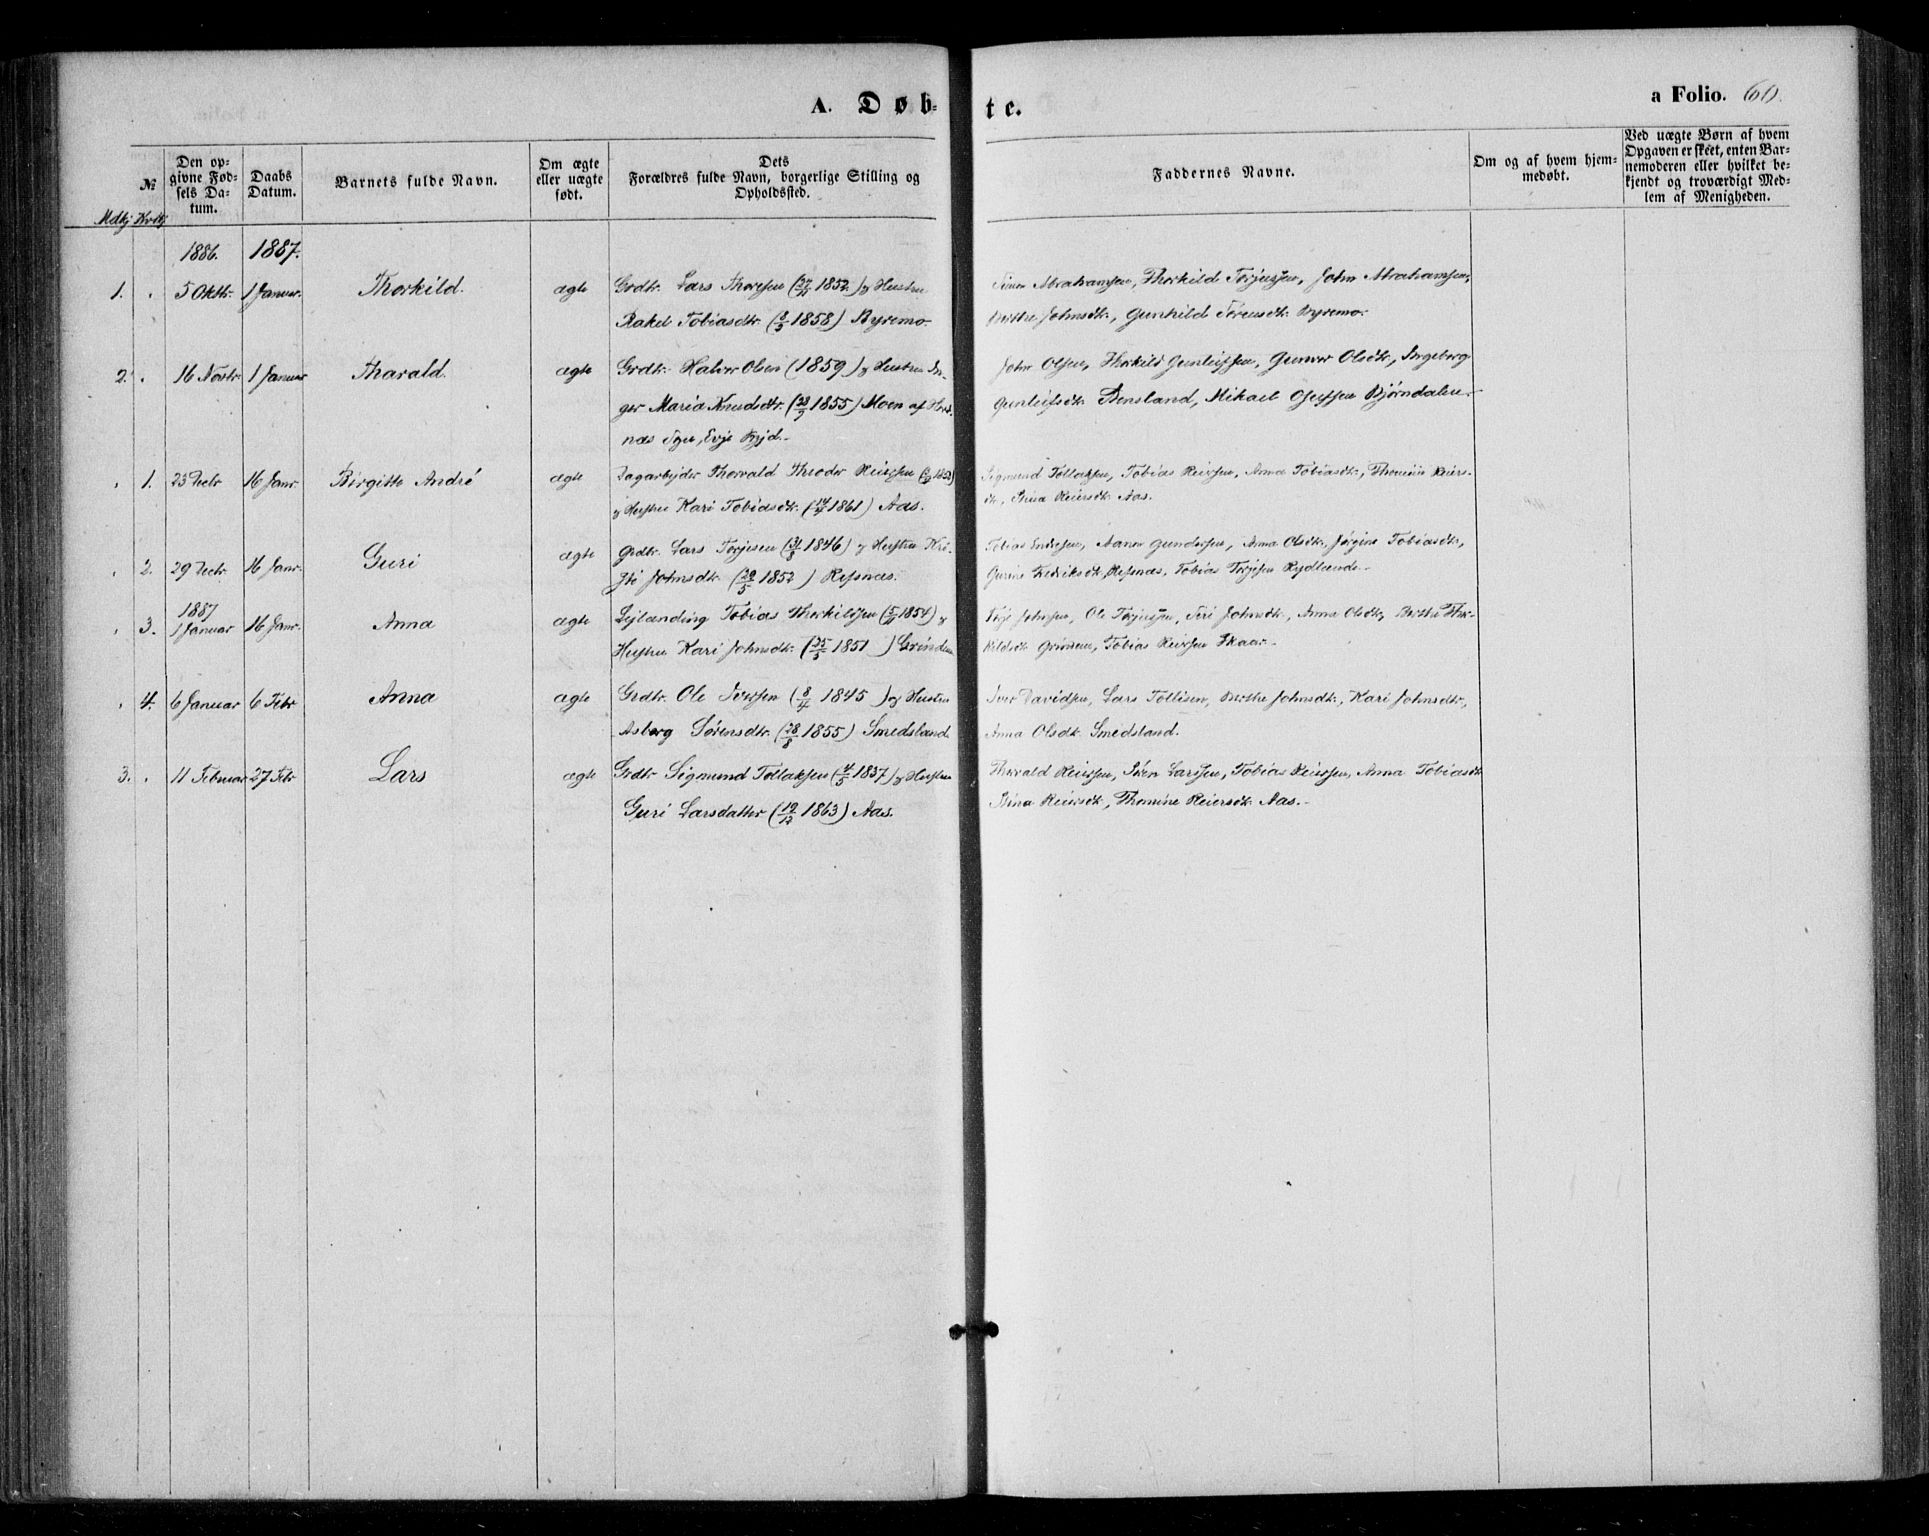 A. Døb-
te.
a Folio. 60.
№
Mdkj Kvdkj
Den op-
givne Fød-
sels Da-
tum.
Daabs
Datum.
Barnets fulde Navn.
Om ægte
eller uægte
født.
Dets
Forældres fulde Navn, borgerlige Stilling og
Opholdssted.
Faddernes Navne.
Om og af hvem hjem-
medøbt.
Ved uægte Børn af hvem
Opgaven er skeet, enten Bar-
nemoderen eller hvilket be-
kjendt og troværdigt Med-
lem af Menigheden.
1886. 1887.
1. 5 Oktbr. 1 Januar. Thorkild. ægte Grdbr. Lars Thoresen (1852) og Hustru
Rakel Tobiasdtr. (1858) Byremo.
Simon Abrahamsen, Thorkild Terjussen, John Abrahamsen,
Berthe Johnsdtr., Gunhild Byremo.
2. 16 Novbr. 1 Januar Tharald. ægte Grdbr. Halvor Olsen (1859) og Hustru In-
ger Maria Knudsdtr. (23/7 1855) Moen af
næs Sgn, Evje Prgjd.
John Olsen, Thorkild Gunleifsen, Gunvor Olsdtr., Ingeborg
Gunleifsdtr. Bensland, Mikael Bjørndalen.
1. 23 Decbr. 16 Janr. Birgitte André ægte Dagarbejder Thorvald Theodor Reiersen
og Hustru Kari Tobiasdtr. (1861) Aas.
Sigmund Tollaksen, Tobias Reiersen, Anna Tobiasdtr., Thomine Reiers-
dtr., Stina Reiersdtr. Aas.
2. 29 Decbr. 16 Janr. Guri ægte Grdbr. Lars Terjesen (31/8 1846) og Hustru Kri-
sti Johnsdtr. (29/5 1852) Refsnæs.
Tobias Endresen, Aanen Gundersen, Anna Olsdtr. Jørgine Tobiasdtr.,
Gurine Fredriksdtr. Refsnæs, Tobias Terjesen Rydlende.
1887
3. 1 Januar 16 Janr. Anna ægte Lejlænding Tobias Thorkildsen (1854) og
Hustru Kari Johnsdtr. (25/5 1851)
Terje Johnsen, Ole Terjussen, Siri Johnsdtr., Anna Olsdtr., Berthe Thor-
kildsdtr. Tobias Reiersen Skaar.
4. 6 Januar 6 Febr Anna ægte Grdbr. Ole Iversen (8/4 1845) og Hustru
Asborg Sørensdtr. (28/8 1855) Smedsland.
Iver Davidsen, Lars Tollisen, Berthe Johnsdtr., Kari Johnsdtr.,
Anna Olsdtr. Smedsland.
3. 11 Februar 27 Febr Lars ægte Grdbr Sigmund Tollaksen (4/5 1837) og Hustru
Guri Larsdatter (19/12 1863) Aas.
Thorvald Reiersen, Sven Larssen, Tobias Reiersen, Anna Tobiasdtr
Stina Reiersdtr., Thomine Reiersdtr. Aas.